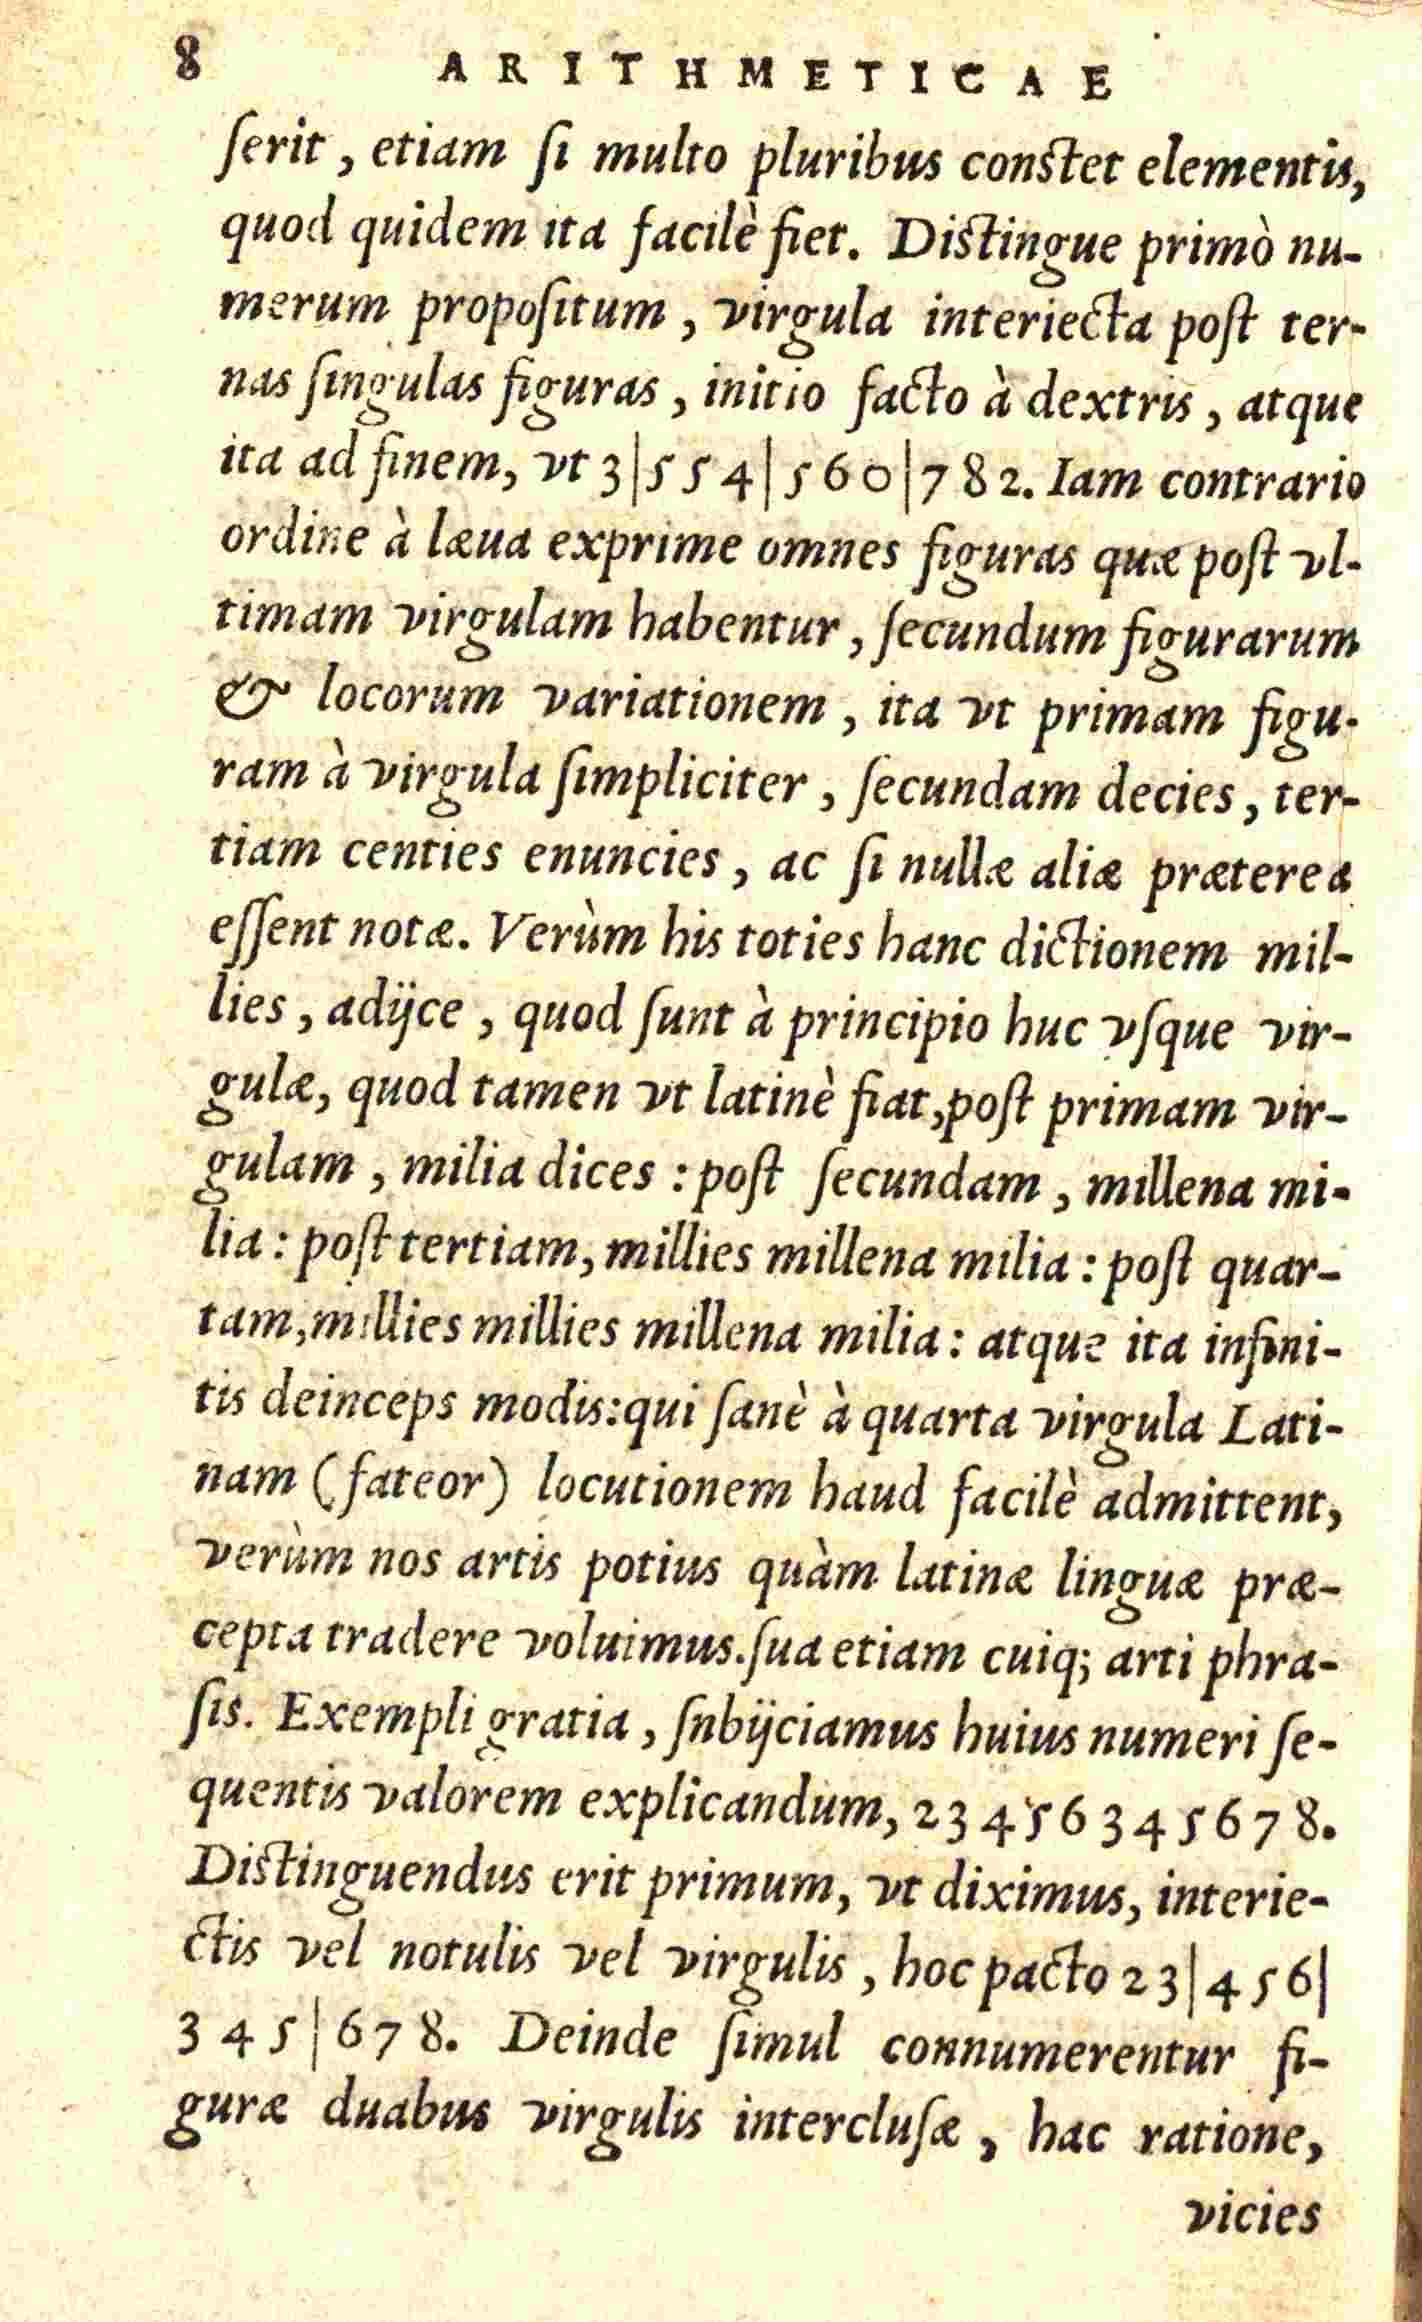 8 ARITHMETICAE
ſerit, etiam ſi multo pluribus conſtet elementis,
quod quidem ita facilè fiet. Diſtingue primò nu-
merum propoſitum, virgula interiecta poſt ter-
nas ſingulas figuras, initio facto à dextris, atque
ita ad finem, vt 3|554|560|782. Iam contrario
ordine à læua exprime omnes figuras quæ poſt vl-
timam virgulam habentur, ſecundum figurarum
& locorum variationem, ita vt primam figu-
ram à virgula ſimpliciter, ſecundam decies, ter-
tiam centies enuncies, ac ſi nullæ aliæ præterea
eſſent notæ. Verùm his toties hanc dictionem mil-
lies, adijce, quod ſunt à principio huc vſque vir-
gulæ, quod tamen vt latinè fiat, poſt primam vir-
gulam, milia dices : poſt ſecundam, millena mi-
lia : poſt tertiam, millies millena milia : poſt quar-
tam, millies millies millena milia : atque ita infini-
tis deinceps modis: qui ſanè à quarta virgula Lati-
nam (fateor) locutionem haud facilè admittent,
verùm nos artis potius quàm latinæ linguæ præ-
cepta tradere voluimus. ſua etiam cuiq; arti phra-
ſis. Exempli gratia, ſnbijciamus huius numeri ſe-
quentis valorem explicandum, 23456345678.
Diſtinguendus erit primum, vt diximus, interie-
ctis vel notulis vel virgulis, hoc pacto 23|456|
345|678. Deinde ſimul connumerentur fi-
guræ duabus virgulis intercluſæ, hac ratione,
vicies